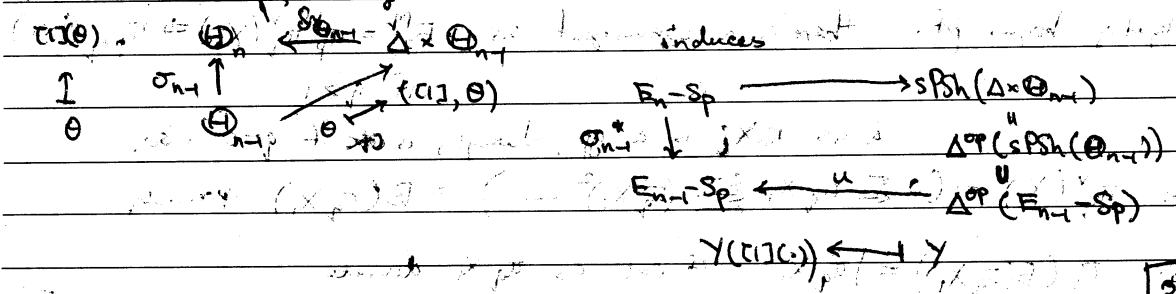 [1](θ). Θ_n ←δ_{Θ_{n-1}} Δ × Θ_{n-1} induces
↥ σ_{n-1} ↑ ([1], θ) E_n-Sp → sPSh(Δ×Θ_{n-1})
θ Θ_{n-1} θ ↦ σ*_{n-1} ↓ j Δ^op(sPSh(Θ_{n-1}))
E_{n-1}-Sp ←u Δ^op(E_{n-1}-Sp)
Y([1](·)) ↤ Y